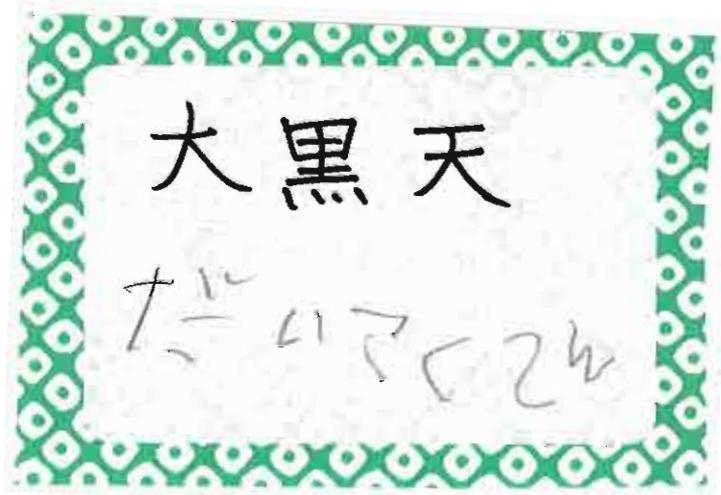 大黒天
だいこくてん